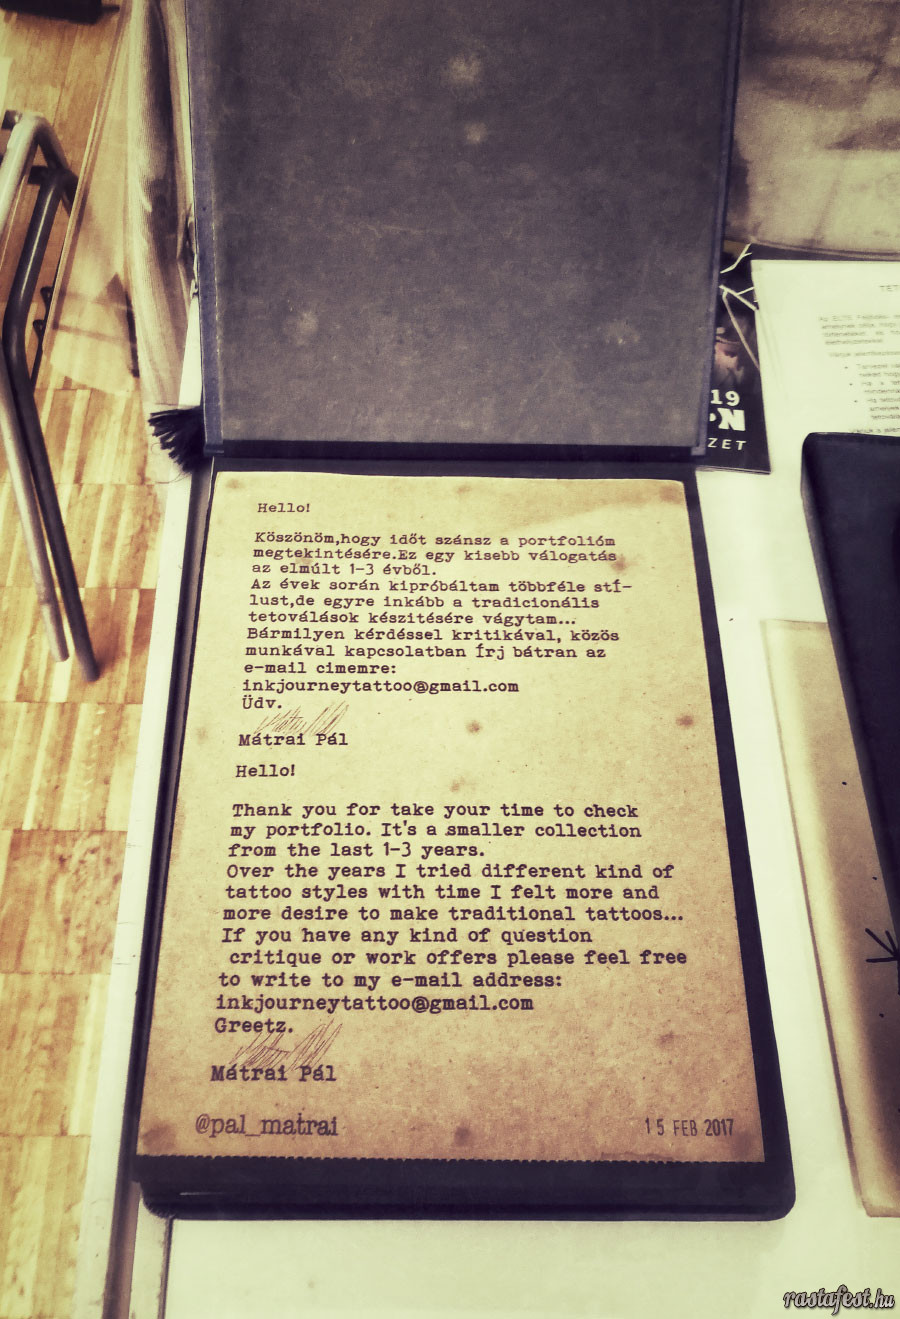 Hello!
Köszönöm,hogy időt szánsz a portfolióm
megtekintésére.Ez egy kisebb válogatás
az elmúlt 1-3 évből.
Az évek során kipróbáltam többféle stí-
lust,de egyre inkább a tradicionális
tetoválások készitésére vágytam...
Bármilyen kérdéssel kritikával, közös
munkával kapcsolatban Írj bátran az
e-mail cimemre:
inkjourneytattoo@gmail.com
Üdv.
Mátrai Pál
Hello!
Thank you for take your time to check
my portfolio. It's a smaller collection
from the last 1-3 years.
Over the years I tried different kind of
tattoo styles with time I felt more and
more desire to make traditional tattoos...
If you have any kind of question
critique or work offers please feel free
to write to my e-mail address:
inkjourneytattoo@gmail.com
Greetz.
Mátrai Pál
@pal_matrai
15 FEB 2017
19
N
ZET
Az ELTE
rastafest.hu